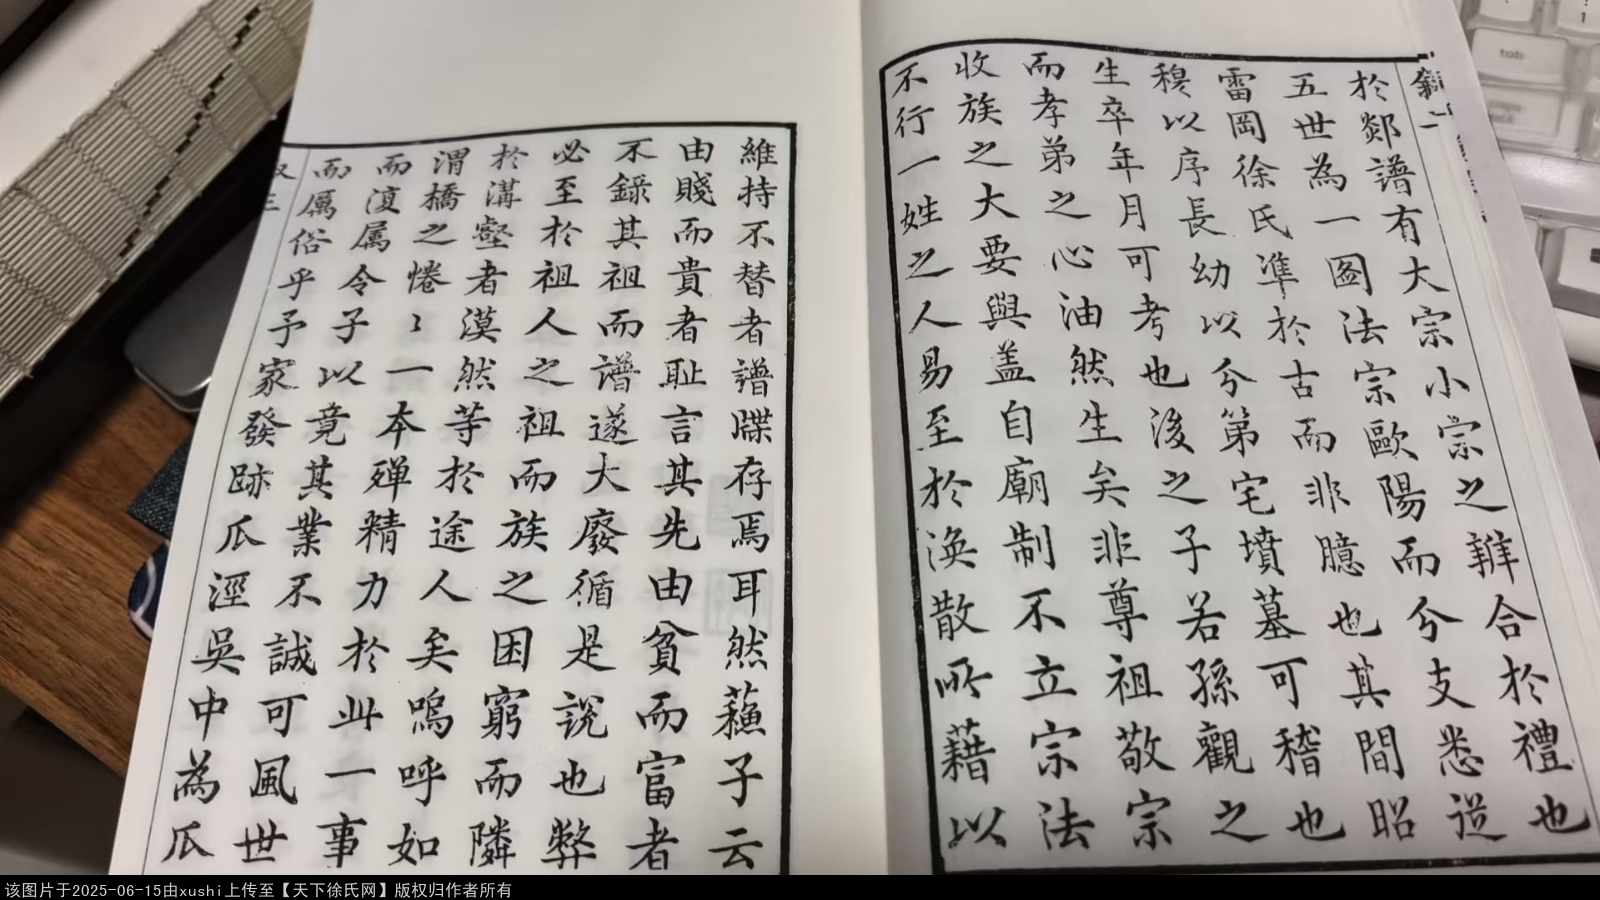 於鄒譜有大宗小宗之辨合於禮也
五世為一圖法宗歐陽而分支悉送
雷岡徐氏準於古而非臆也其間昭
穆以序長幼以分第宅墳墓可稽也
生卒年月可考也後之子若孫觀之
而孝弟之心油然生矣非尊祖敬宗
收族之大要與盖自廟制不立宗法
不行一姓之人易至於渙散所藉以
維持不替者譜牒存焉耳然蘓子云
由賤而貴者耻言其先由貧而富者
不錄其祖而譜遂大廢循是說也弊
必至於祖人之祖而族之困窮而隣
於溝壑者漠然等於途人矣嗚呼如
渭橋之惓〻一本殫精力於此一事
而復屬令子以竟其業不誠可風世
而厲俗乎予家發跡瓜涇吳中為瓜
叙三
該图片于2025-06-15由xushi上传至【天下徐氏网】版权归作者所有